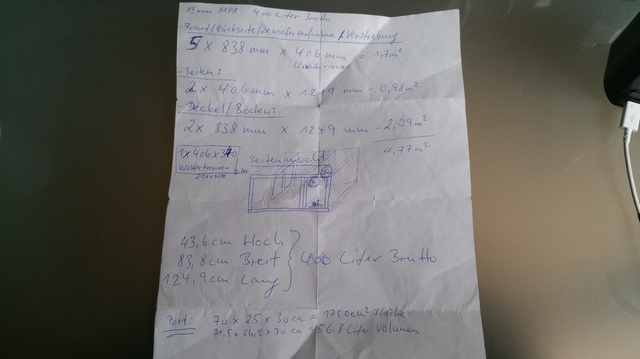 15mm MPX 400 Liter Brutto
Front/Rückseite/2x Wooferaufnahme/Verstrebung
5 x 838 mm x 406 mm = 1,7m²
Seiten:
2 x 406 mm x 1249 mm = 0,98m²
Deckel/Boden:
2 x 838 mm x 1249 mm = 2,09m²
4,77m²
1x406x340
Seitenansicht
43,6cm Hoch
83,8cm Breit
124,9cm Lang
400 Liter Brutto
Port: 70 x 25 x 30 ca = 1750cm² Fläche
71,5 x 26,5 x 30 ca = 56.8 Liter Volumen